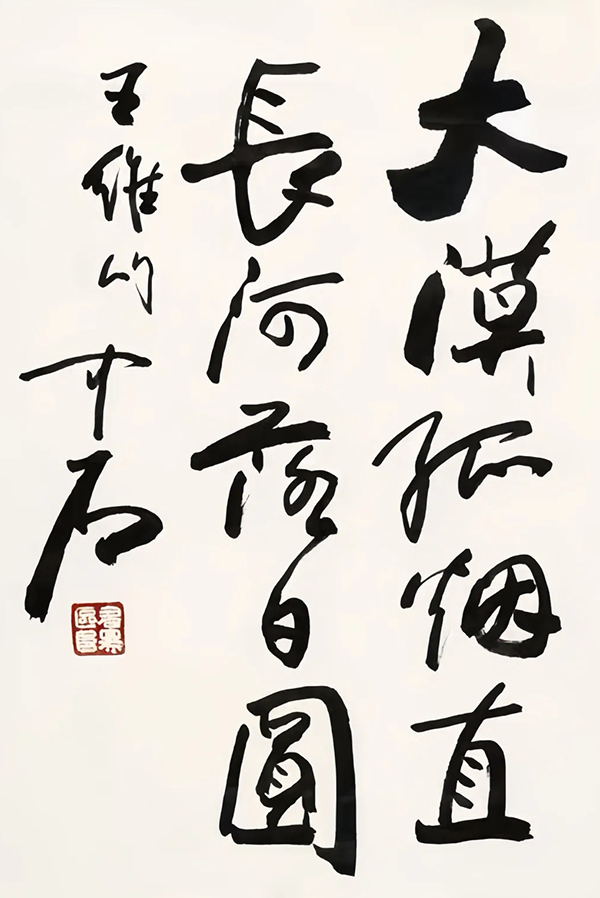 大漠孤烟直
長河落日圓
王維句
中石